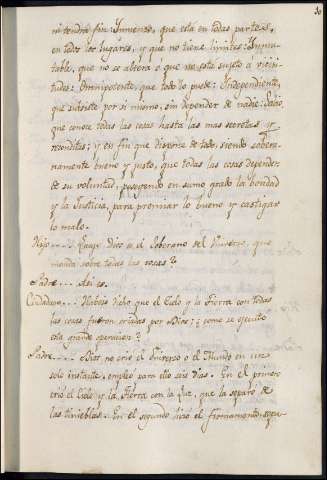 30
ni tendrá fin: Ymmenso, que está en todas partes,
en todos los lugares, y que no tiene limites: Ynmu-
table, que no se altera ó que no está sujeto à vicisi-
tudes: Omnipotente, que todo lo puede: Independiente,
que subsiste por si mismo, sin depender de nadie: Sabio,
que conoce todas las cosas hasta las mas secretas y
reconditas; y en fin que dispone de todo, siendo sobera-
namente bueno y justo, que todas las cosas dependen
de su voluntad, poseyendo en sumo grado la bondad
y la Justicia, para premiar lo bueno y castigar
lo malo.
Hijo.... Luego Dios es el Soberano del Universo, que
manda sobre todas las cosas?
Padre.... Asi es.
Ciudadano.... Habeis dicho que el Cielo y la Tierra con todas
las cosas fueron criadas por Dios: ¿como se egecutó
esta grande operacion?
Padre.... Dios no crió el Universo o el Mundo en un
solo instante, empleó para ello seis dias. En el primero
crió el Cielo y la Tierra con la luz, que la separó de
las tinieblas. En el segundo hizo el firmamento,